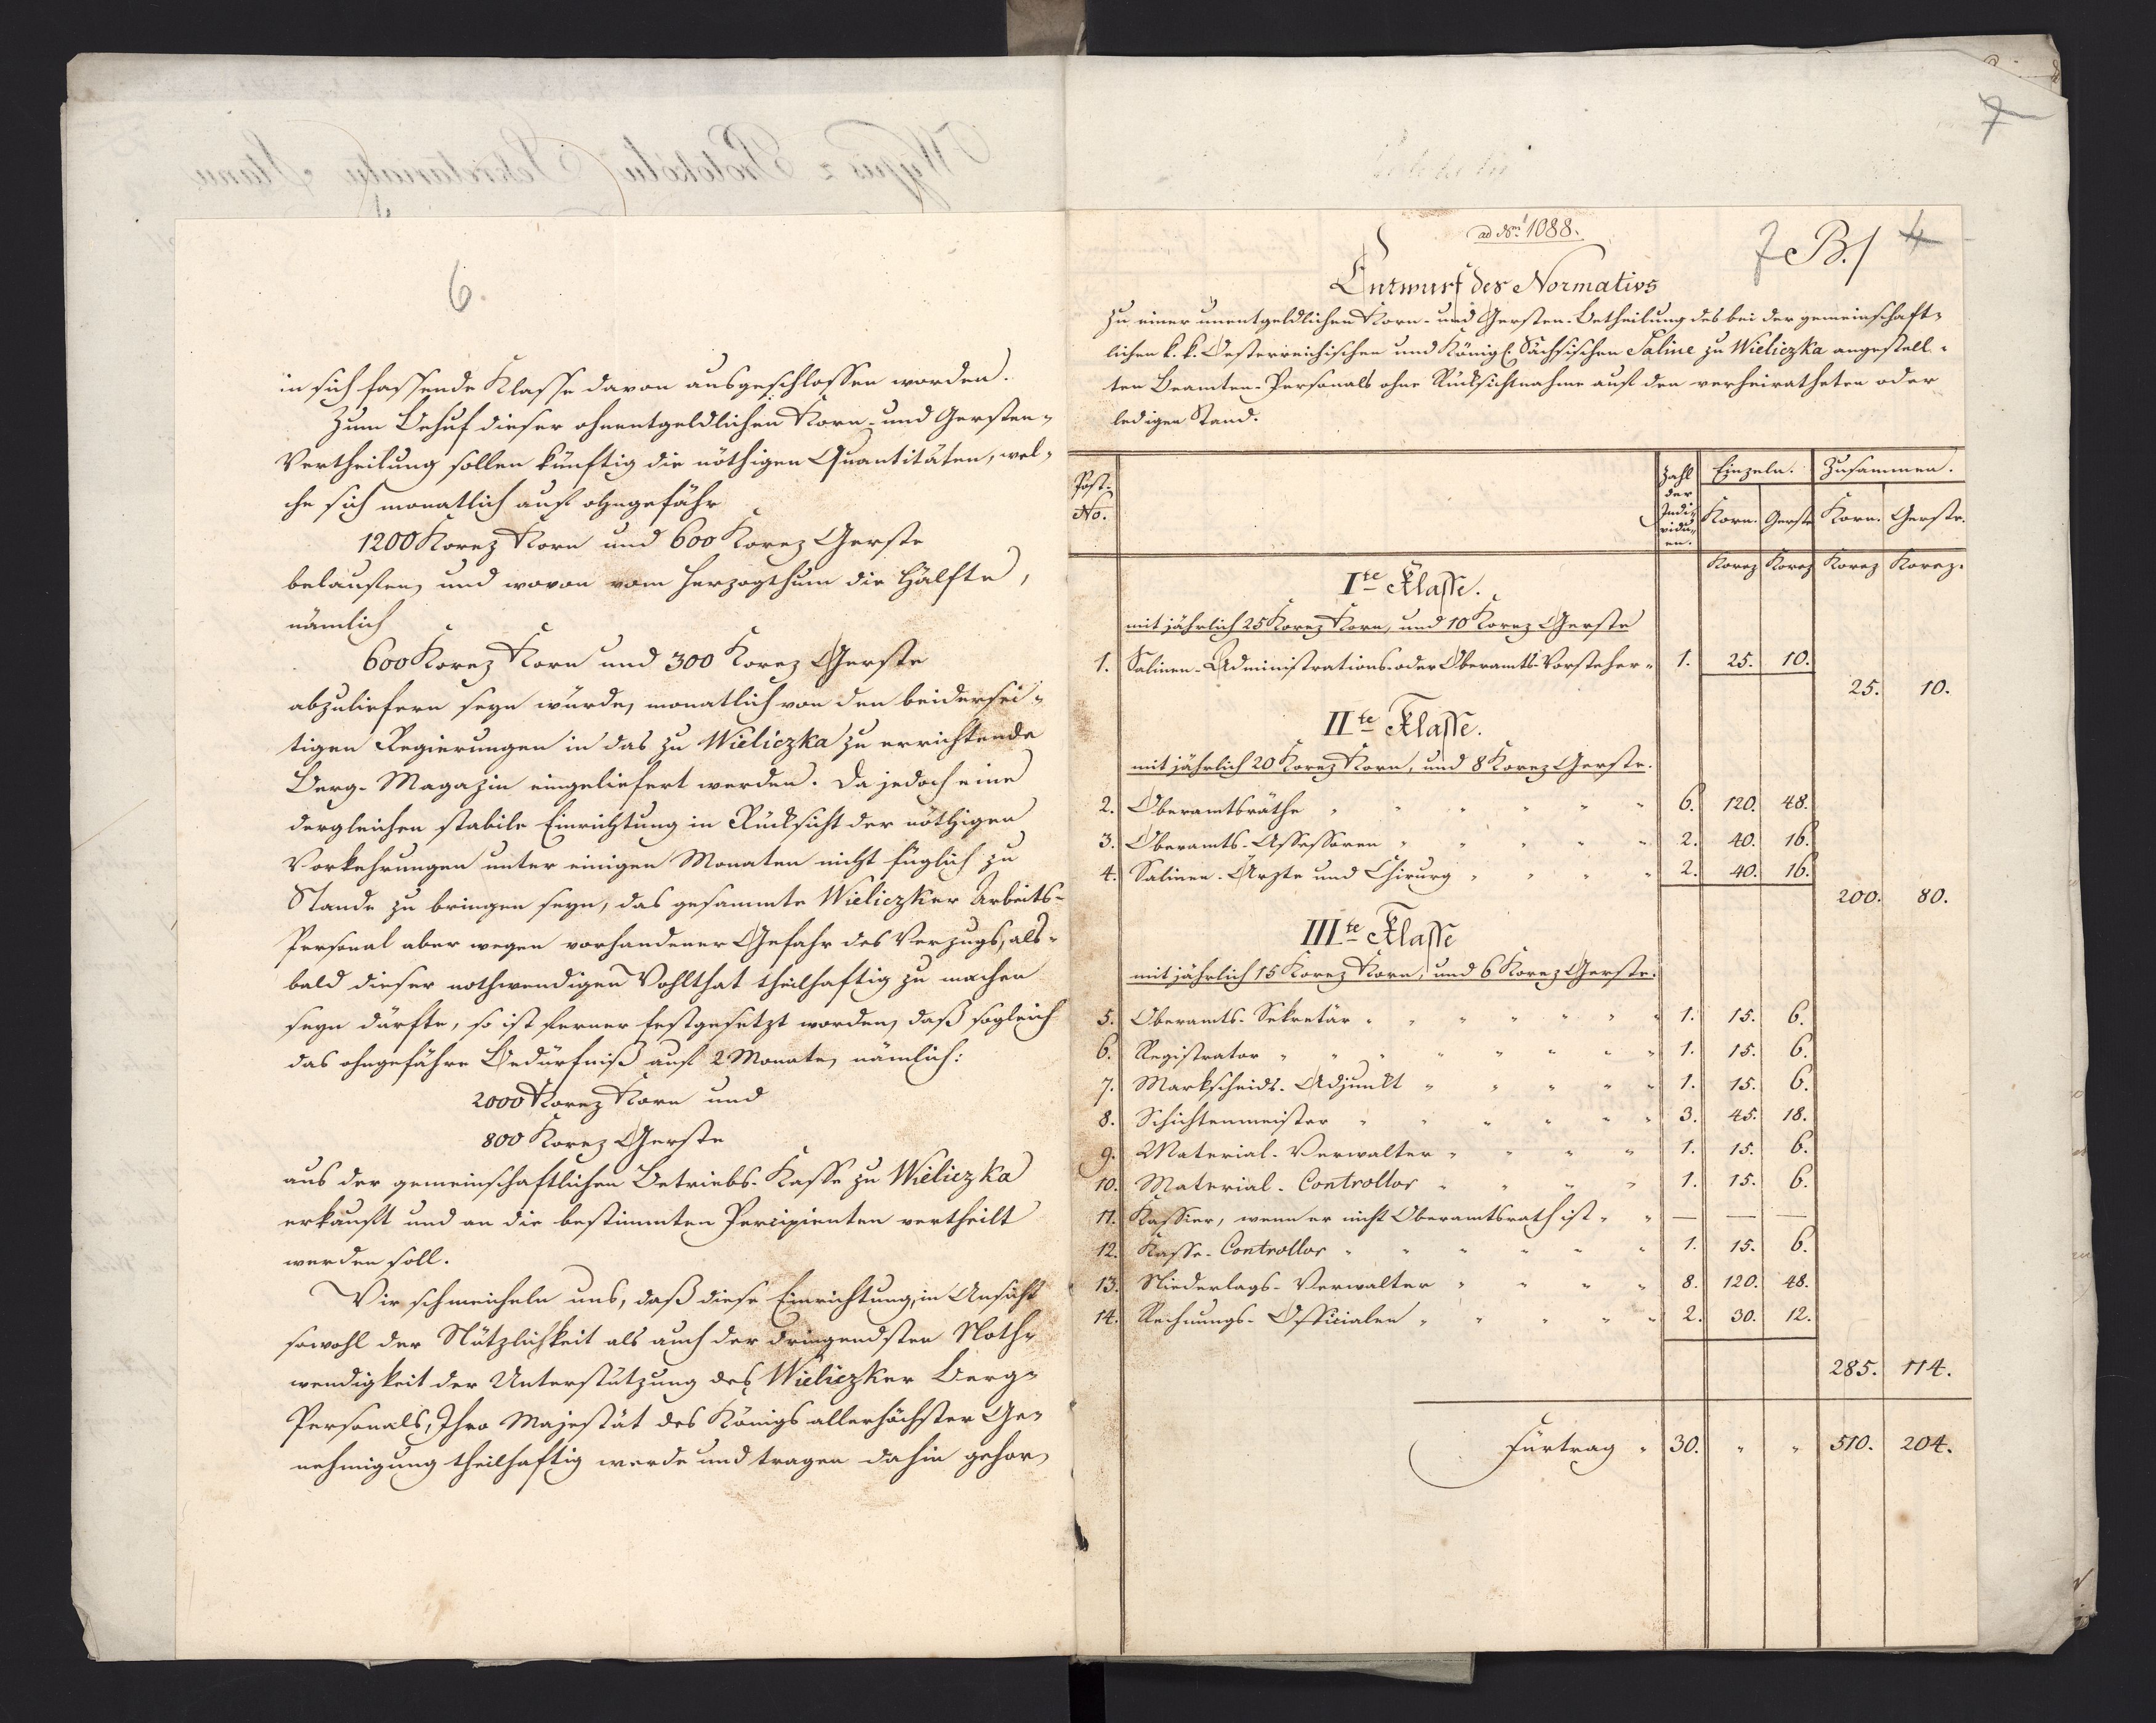 6.
in sich fassende Klasse davon ausgeschlossen worden.
Zum Behuf dieser ohnentgeldlichen Korn- und Gersten-
Vertheilung sollen künftig die nöthigen Quantitäten, wel-
che sich monatlich auf ohngefähr
1200 Korez Korn und 600 Korez Gerste
belaufen, und wovon vom Herzogthum die Hälfte,
nämlich
600 Korez Korn und 300 Korez Gerste
abzuliefern seyn würde, monatlich von den beidersei-
tigen Regierungen in das zu Wieliczka zu errichtende
Berg-Magazin eingeliefert werden. Da jedoch eine
dergleichen stabile Einrichtung in Rücksicht der nöthigen
Vorkehrungen unter einigen Monaten nicht füglich zu
Stande zu bringen seyn, das gesammte Wieliczker Arbeits-
Personal aber wegen vorhandener Gefahr des Verzugs, als-
bald dieser nothwendigen Wohlthat theilhaftig zu machen
seyn dürfte, so ist ferner festgesetzt worden, daß sogleich
das ohngefähre Bedürfniß auf 2 Monate, nämlich:
2000 Korez Korn und
800 Korez Gerste
aus der gemeinschaftlichen Betriebs-Kasse zu Wieliczka
erkauft und an die bestimmten Percipienten vertheilt
werden soll.
Wir schmeicheln uns, daß diese Einrichtung, in Ansicht
sowohl der Nützlichkeit als auch der dringendsten Noth-
wendigkeit der Unterstützung des Wieliczker Berg-
Personals, Ihro Majestät des Königs allerhöchster Ge-
nehmigung theilhaftig werde und tragen dahin gehor-
7
ad 1088.
7 B./ 4
Entwurf des Normativs
zu einer unentgeldlichen Korn- und Gersten-Betheilung des bei der gemeinschaft-
lichen k. k. Oesterreichischen und Königl. Sächsischen Saline zu Wieliczka angestell-
ten Beamten-Personals ohne Rücksichtnahme auf den verheiratheten oder
ledigen Stand.
Post-No. Zahl der Individuen. Einzeln. Zusammen.
Korn. Gerste Korn. Gerste.
Korez Korez Korez Korez.
Ite Klasse.
mit jährlich 25 Korez Korn, und 10 Korez Gerste
1. Salinen-Administrations- oder Oberamts-Vorsteher " 1. 25. 10.
25. 10.
IIte Klasse.
mit jährlich 20 Korez Korn, und 8 Korez Gerste.
2. Oberamtsräthe " " " " " " 6. 120. 48.
3. Oberamts-Assessoren " " " " " 2. 40. 16.
4. Salinen-Ärzte und Chirurg " " " " 2. 40. 16.
200. 80.
IIIte Klasse
mit jährlich 15 Korez Korn, und 6 Korez Gerste.
5. Oberamts-Sekretär " " " " " " " 1. 15. 6.
6. Registrator " " " " " " " " 1. 15. 6.
7. Markscheids-Adjunkt " " " " " 1. 15. 6.
8. Schichtenmeister " " " " " " 3. 45. 18.
9. Material-Verwalter " " " " 1. 15. 6.
10. Material-Controllor " " " " 1. 15. 6.
11. Kassier, wenn er nicht Oberamtsrath ist " " — — —
12. Kasse-Controllor " " " " " " 1. 15. 6.
13. Niederlags-Verwalter " " " " 8. 120. 48.
14. Rechnungs-Officialen " " " " " 2. 30. 12.
285. 114.
Fürtrag " 30. " " 510. 204.